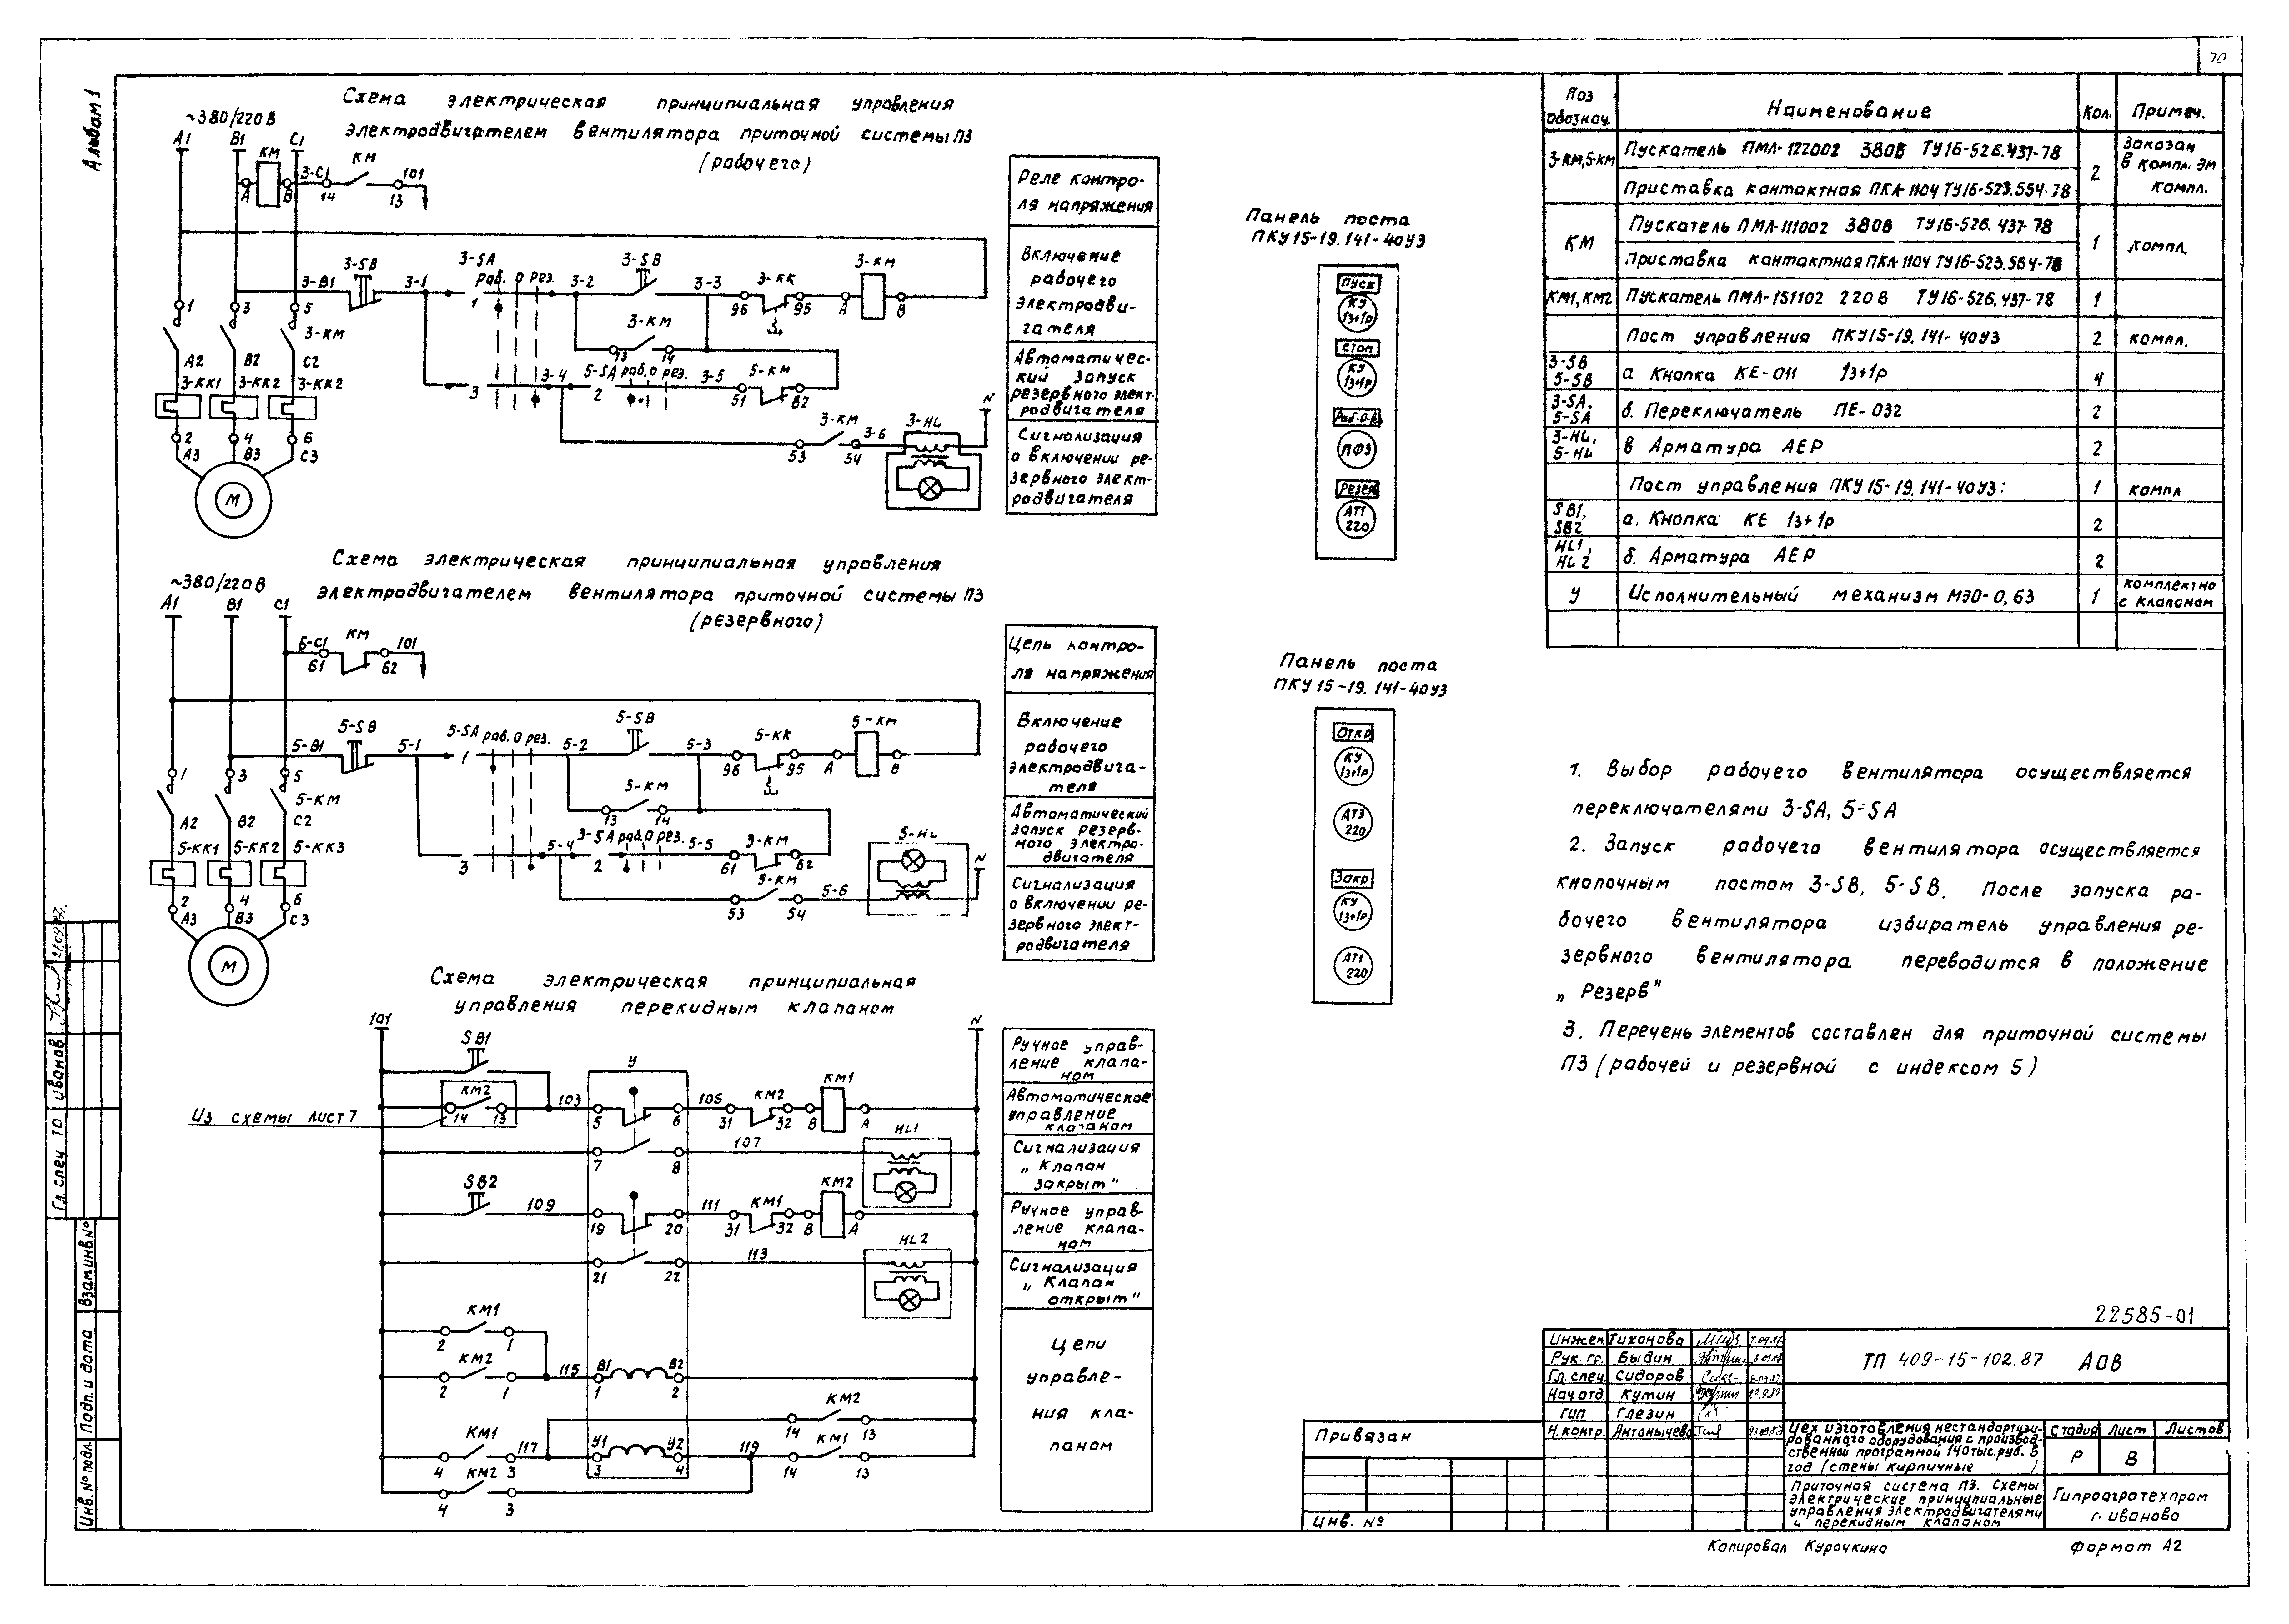 70
Альбом 1
Схема электрическая принципиальная управления
электродвигателем вентилятора приточной системы П3
(рабочего)
~380/220 В
А1 В1 С1
КМ
3-С1 КМ 101
А В 14 13
3-В1 3-SB 3-1 3-SA
раб. 0 рез.
3-2 3-SB 3-3 3-КК 3-КМ
1 3 5
1 96 95 А В
3-КМ
3-КМ
13 14
А2 В2 С2
3-КК1 3-КК2 3-КК2
3 3-4 5-SA раб. 0 рез. 3-5 5-КМ
2 51 В2
3-КМ 3-6 3-HL N
53 54
2 4 6
А3 В3 С3
М
Реле контро-
ля напряжения
Включение
рабочего
электродви-
гателя
Автоматичес-
кий запуск
резервного элект-
родвигателя
Сигнализация
о включении ре-
зервного элект-
родвигателя
Схема электрическая принципиальная управления
электродвигателем вентилятора приточной системы П3
(резервного)
~380/220 В
А1 В1 С1
5-С1 КМ 101
61 62
5-В1 5-SB 5-1 5-SA раб. 0 рез. 5-2 5-SB 5-3 5-КК 5-КМ
1 3 5
1 96 95 А В
5-КМ
5-КМ
13 14
А2 В2 С2
5-КК1 5-КК2 5-КК3
3 5-4 3-SA раб. 0 рез. 5-5 3-КМ
2 61 62
5-КМ 5-6 5-HL N
53 54
2 4 6
А3 В3 С3
М
Цепь контро-
ля напряжения
Включение
рабочего
электродвига-
теля
Автоматический
запуск резерв-
ного электро-
двигателя
Сигнализация
о включении ре-
зервного элект-
родвигателя
Схема электрическая принципиальная
управления перекидным клапаном
101 N
SB1
У
КМ2 103 105 КМ2 КМ1
14 13 5 6 31 32 В А
Из схемы лист 7
7 8 107 HL1
SB2 109 111 КМ1 КМ2
19 20 31 32 В А
21 22 113 HL2
КМ1
2 1
КМ2 115 В1 В2
2 1 1 2
КМ2
14 13
КМ1 117 У1 У2 119 КМ1
4 3 3 4 14 13
КМ2
4 3
Ручное управ-
ление клапа-
ном
Автоматическое
управление
клапаном
Сигнализация
„Клапан
закрыт"
Ручное управ-
ление клапа-
ном
Сигнализация
„Клапан
открыт"
Цепи
управле-
ния кла-
паном
Панель поста
ПКУ15-19.141-40У3
Пуск
КУ
1з+1р
Стоп
КУ
1з+1р
Раб-0-рез
ПФ3
Резерв
АТ1
220
Панель поста
ПКУ15-19.141-40У3
Откр
КУ
1з+1р
АТ3
220
Закр
КУ
1з+1р
АТ1
220
Поз обознач. Наименование Кол. Примеч.
3-КМ, 5-КМ Пускатель ПМЛ-122002 380В ТУ16-526.437-78 2 Заказан в компл. ЭМ
Приставка контактная ПКЛ-1104 ТУ16-523.554-78 компл.
КМ Пускатель ПМЛ-111002 380В ТУ16-526.437-78 1 компл.
Приставка контактная ПКЛ-1104 ТУ16-523.554-78
КМ1, КМ2 Пускатель ПМЛ-151102 220В ТУ16-526.437-78 1
Пост управления ПКУ15-19.141-40У3 2 компл.
3-SB 5-SB а Кнопка КЕ-011 1з+1р 4
3-SA, 5-SA б. Переключатель ПЕ-032 2
3-HL, 5-HL в Арматура АЕР 2
Пост управления ПКУ15-19.141-40У3: 1 компл.
SB1, SB2 а. Кнопка КЕ 1з+1р 2
HL1, HL2 б. Арматура АЕР 2
У Исполнительный механизм МЭО-0,63 1 комплектно с клапаном
1. Выбор рабочего вентилятора осуществляется
переключателями 3-SA, 5-SA
2. Запуск рабочего вентилятора осуществляется
кнопочным постом 3-SB, 5-SB. После запуска ра-
бочего вентилятора избиратель управления ре-
зервного вентилятора переводится в положение
„Резерв"
3. Перечень элементов составлен для приточной системы
П3 (рабочей и резервной с индексом 5)
22585-01
Инжен. Тихонова
Рук. гр. Быдин
Гл. спец. Сидоров
Нач. отд. Кутин
ГИП Глезин
Н. контр. Антонычева
ТП 409-15-102.87 АОВ
Цех изготовления нестандартизи-
рованного оборудования с производ-
ственной программой 140 тыс. руб. в
год (стены кирпичные)
Стадия Лист Листов
Р 8
Приточная система П3. Схемы
электрические принципиальные
управления электродвигателями
и перекидным клапаном
Гипроагротехпром
г. Иваново
Привязан
Инв. №
Копировал Курочкина Формат А2
Гл. спец ТО Иванов
Взам.инв.№
Подп. и дата
Инв. № подл.